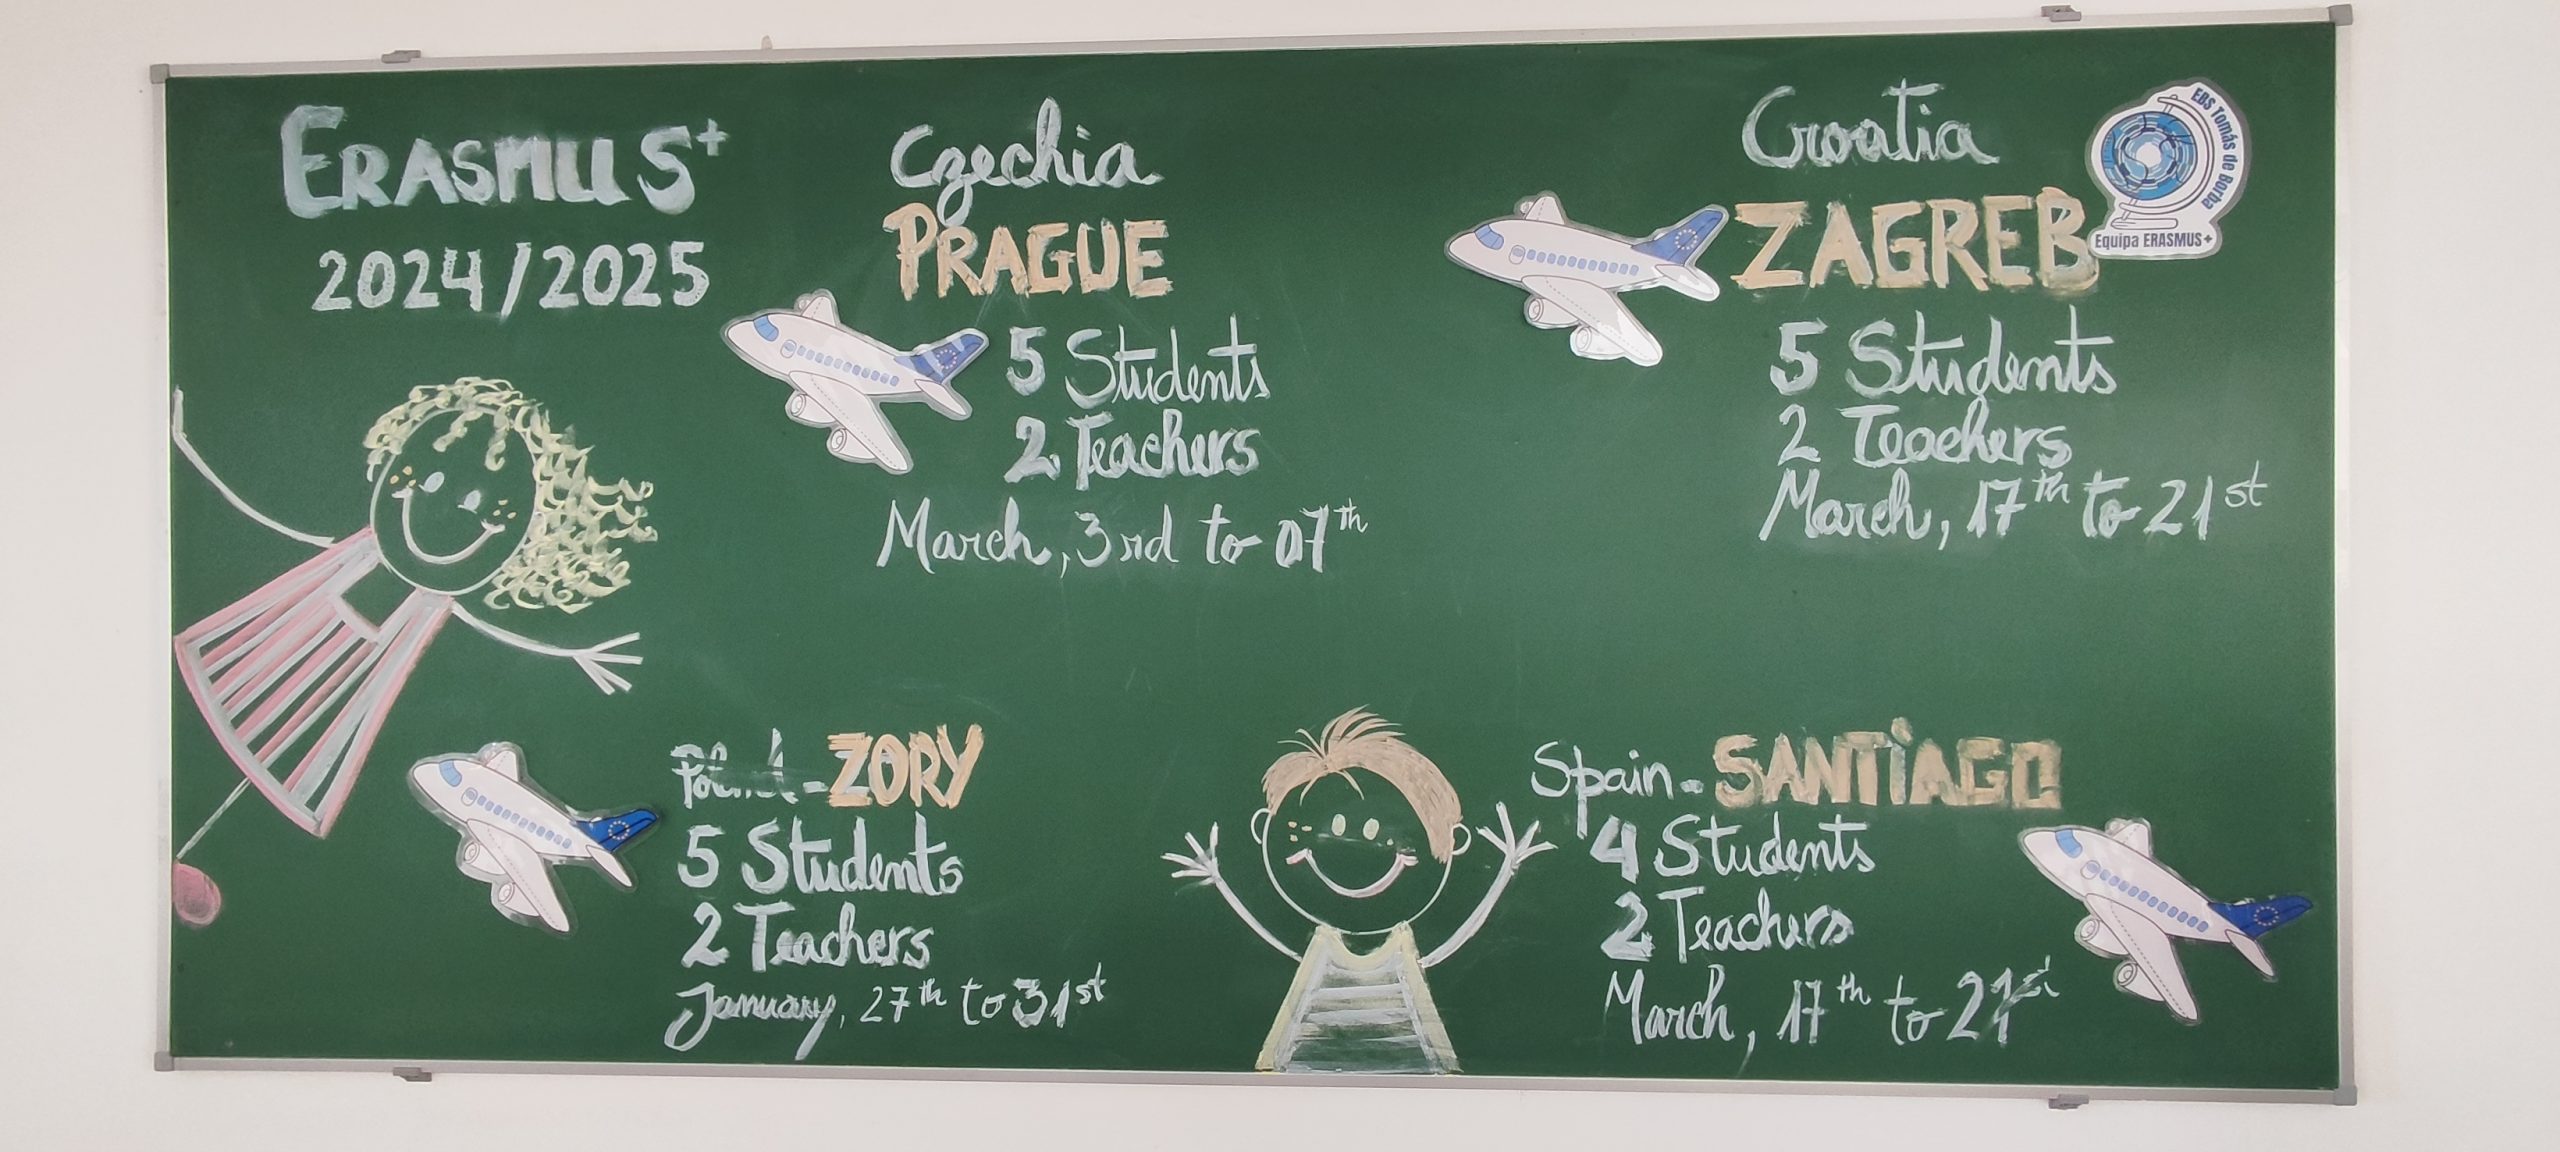 ERASMUS+
2024/2025
Czechia
PRAGUE
5 Students
2 Teachers
March, 3rd to 07th
Croatia
ZAGREB
5 Students
2 Teachers
March, 17th to 21st
EBS Tomás de Borba
Equipa ERASMUS+
Poland - ZORY
5 Students
2 Teachers
January, 27th to 31st
Spain - SANTiAGO
4 Students
2 Teachers
March, 17th to 21st